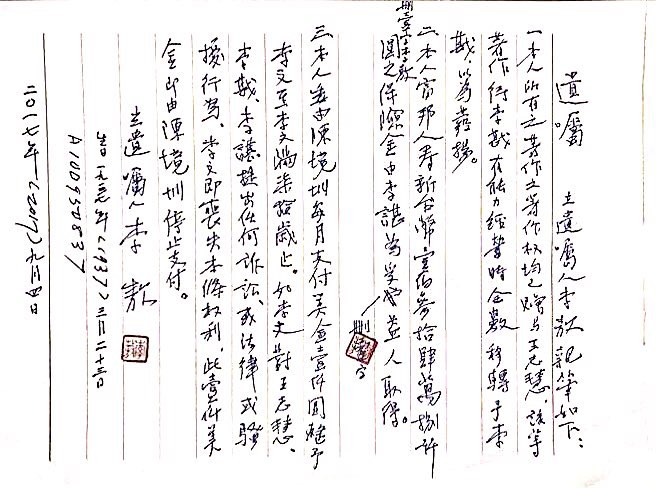 遺囑 立遺囑人李敖親筆如下：
一本人所有之著作之著作权均已贈与王志慧，該等
著作待李戡有能力經營時全數移轉予李
戡，以為發揚。
二本人富邦人寿新台幣壹佰參拾肆萬捌仟
圓之保險金由李諶為受益人取得。
刪 字
三本人委由陳境圳每月支付美金壹仟圓贈予
李文至李文滿柒拾歲止。如李文對王志慧、
李戡、李諶提出任何訴訟、或法律或騷
擾行為，李文即喪失本條权利，此壹仟美
金即由陳境圳停止支付。
立遺囑人 李敖
生日 一九三五年（1935）四月二十五日
A100950837
二〇一七年（2017）九月四日